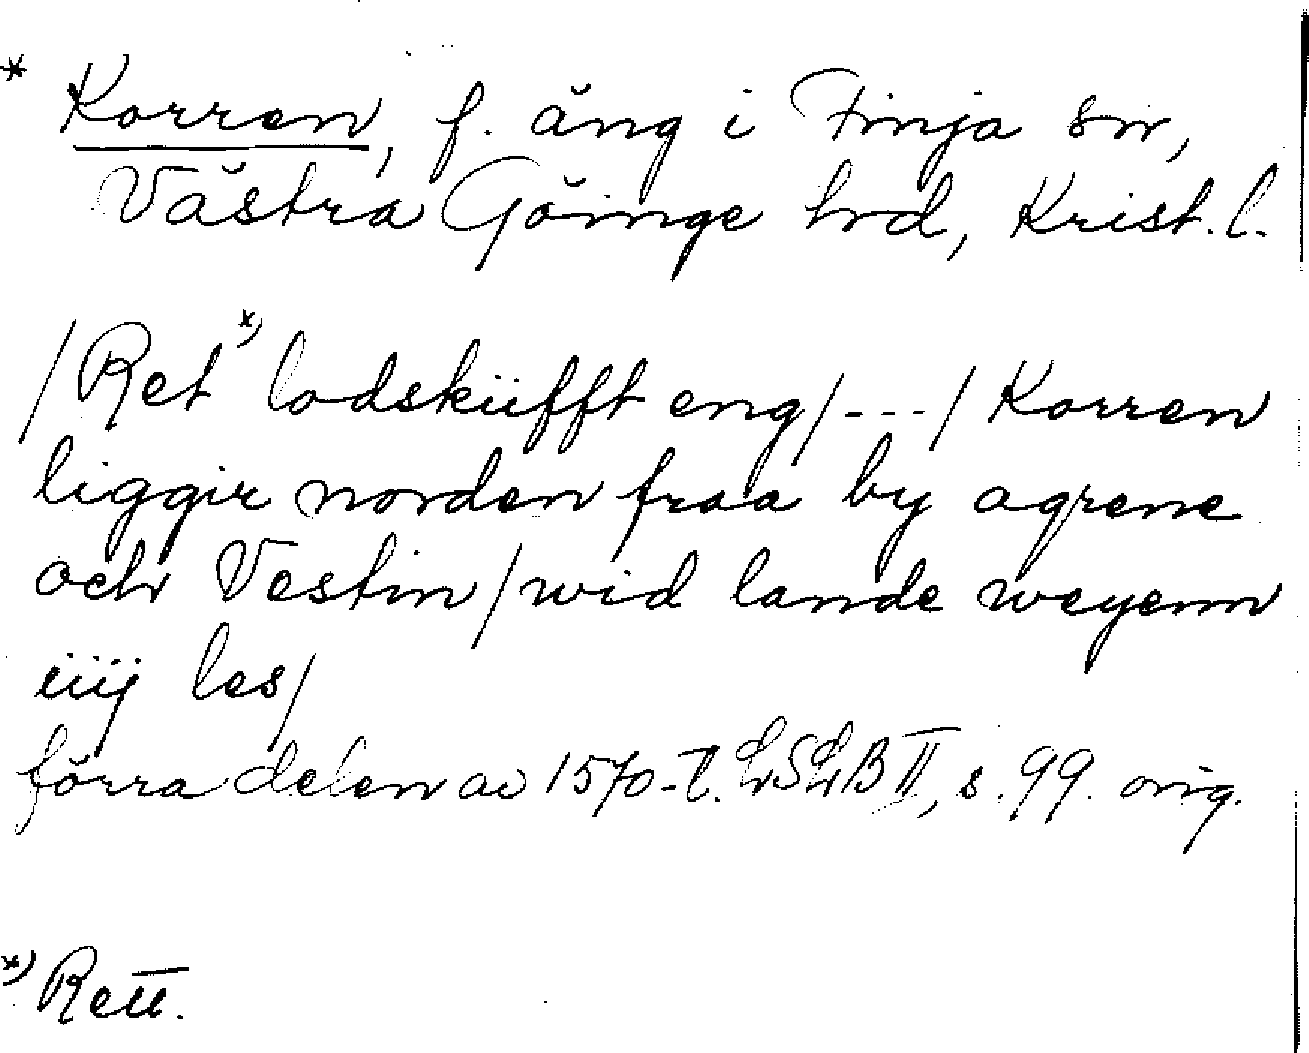 * Korren, f. äng i Finja sn,
Västra Göinge hd, Krist. l.
/Ret *) lodskiifft eng/---/Korren
liggir norden fraa by agrene
och Vestin/wid lande weyenn
iiij les/
förra delen av 1570-t. LSLB II, s. 99. orig.
*) Rett.